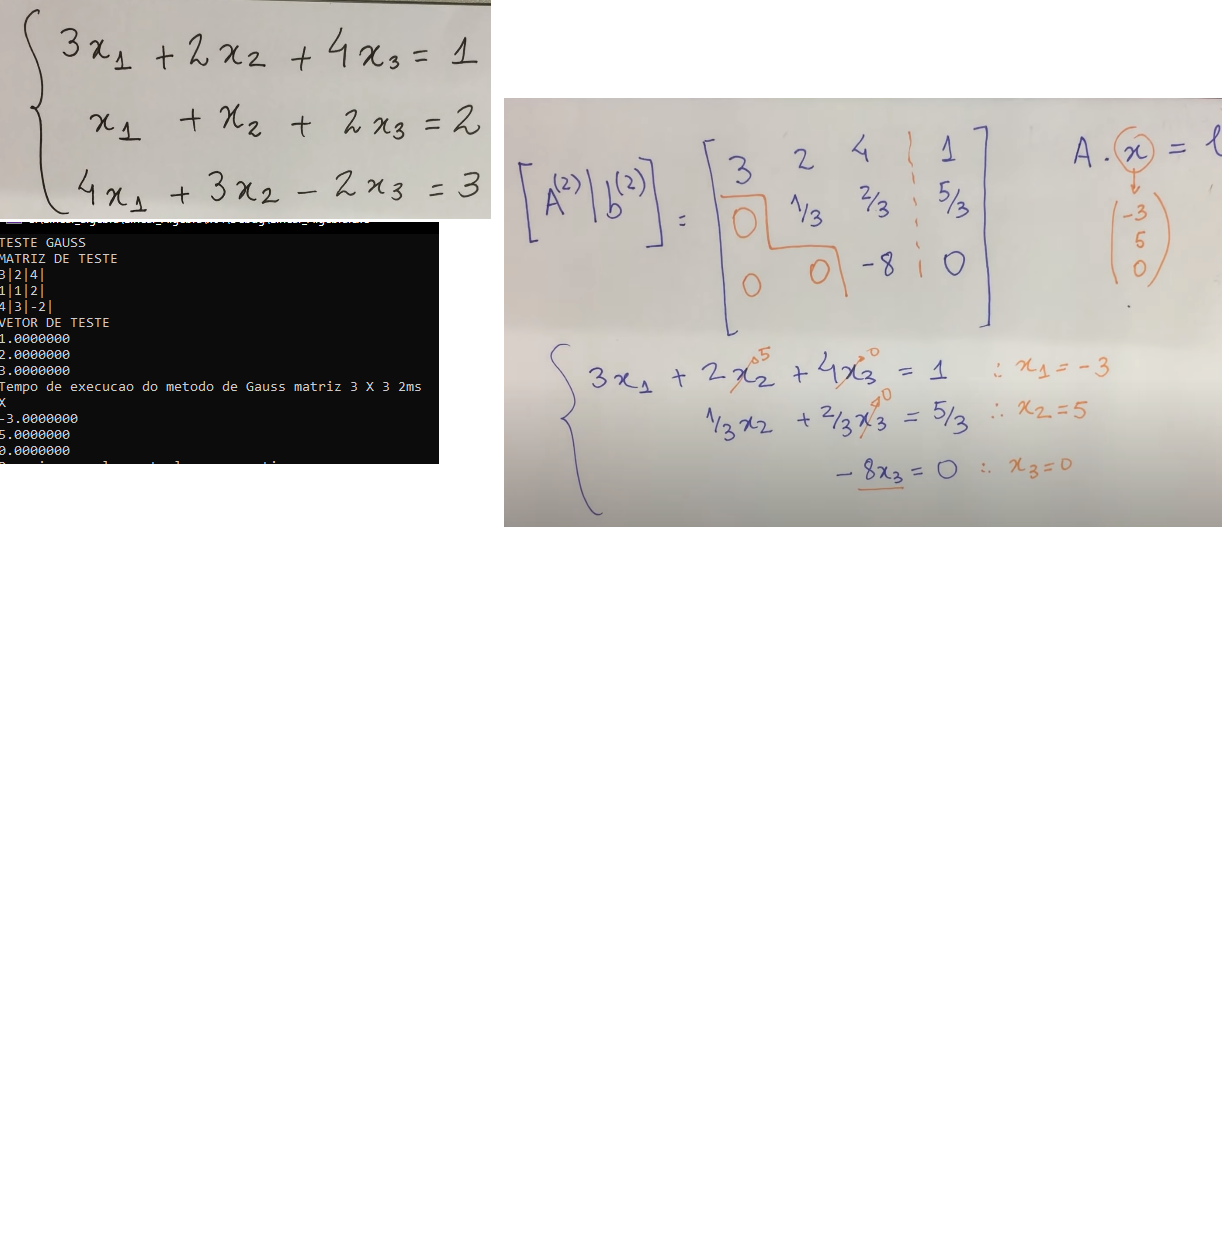 3x₁ + 2x₂ + 4x₃ = 1
x₁ + x₂ + 2x₃ = 2
4x₁ + 3x₂ - 2x₃ = 3
TESTE GAUSS
MATRIZ DE TESTE
3|2|4|
1|1|2|
4|3|-2|
VETOR DE TESTE
1.0000000
2.0000000
3.0000000
Tempo de execucao do metodo de Gauss matriz 3 X 3 2ms
X
-3.0000000
5.0000000
0.0000000
[A⁽²⁾|b⁽²⁾] =
3 2 4 | 1
0 1/3 2/3 | 5/3
0 0 -8 | 0
A . x =
-3
5
0
3x₁ + 2x₂ 5 + 4x₃ 0 = 1 ∴ x₁ = -3
1/3x₂ + 2/3x₃ 0 = 5/3 ∴ x₂ = 5
-8x₃ = 0 ∴ x₃ = 0